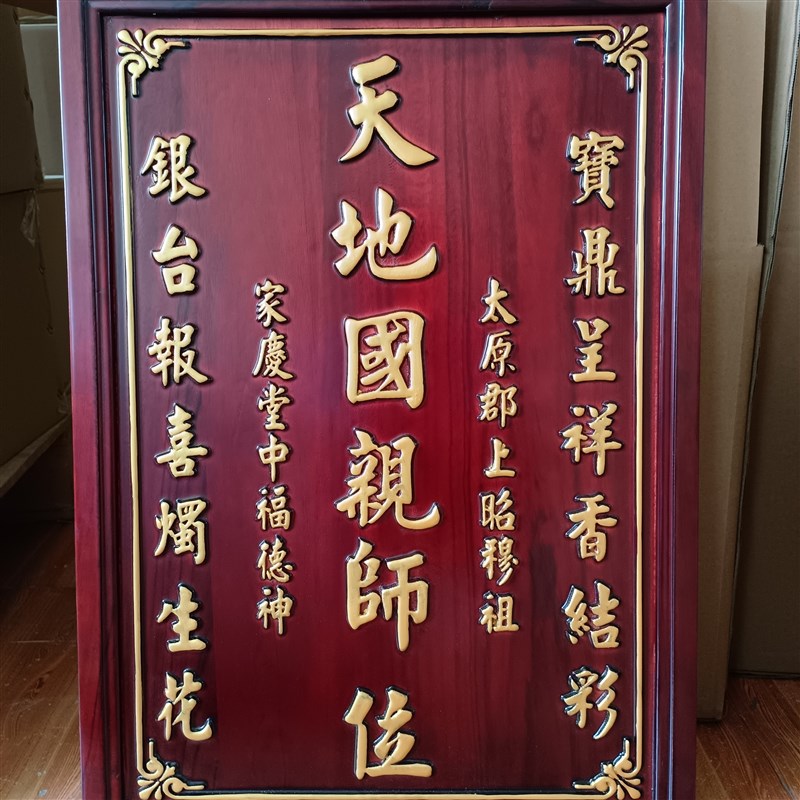 寶鼎呈祥香結彩
太原郡上昭穆祖
天地國親師位
家慶堂中福德神
銀台報喜燭生花